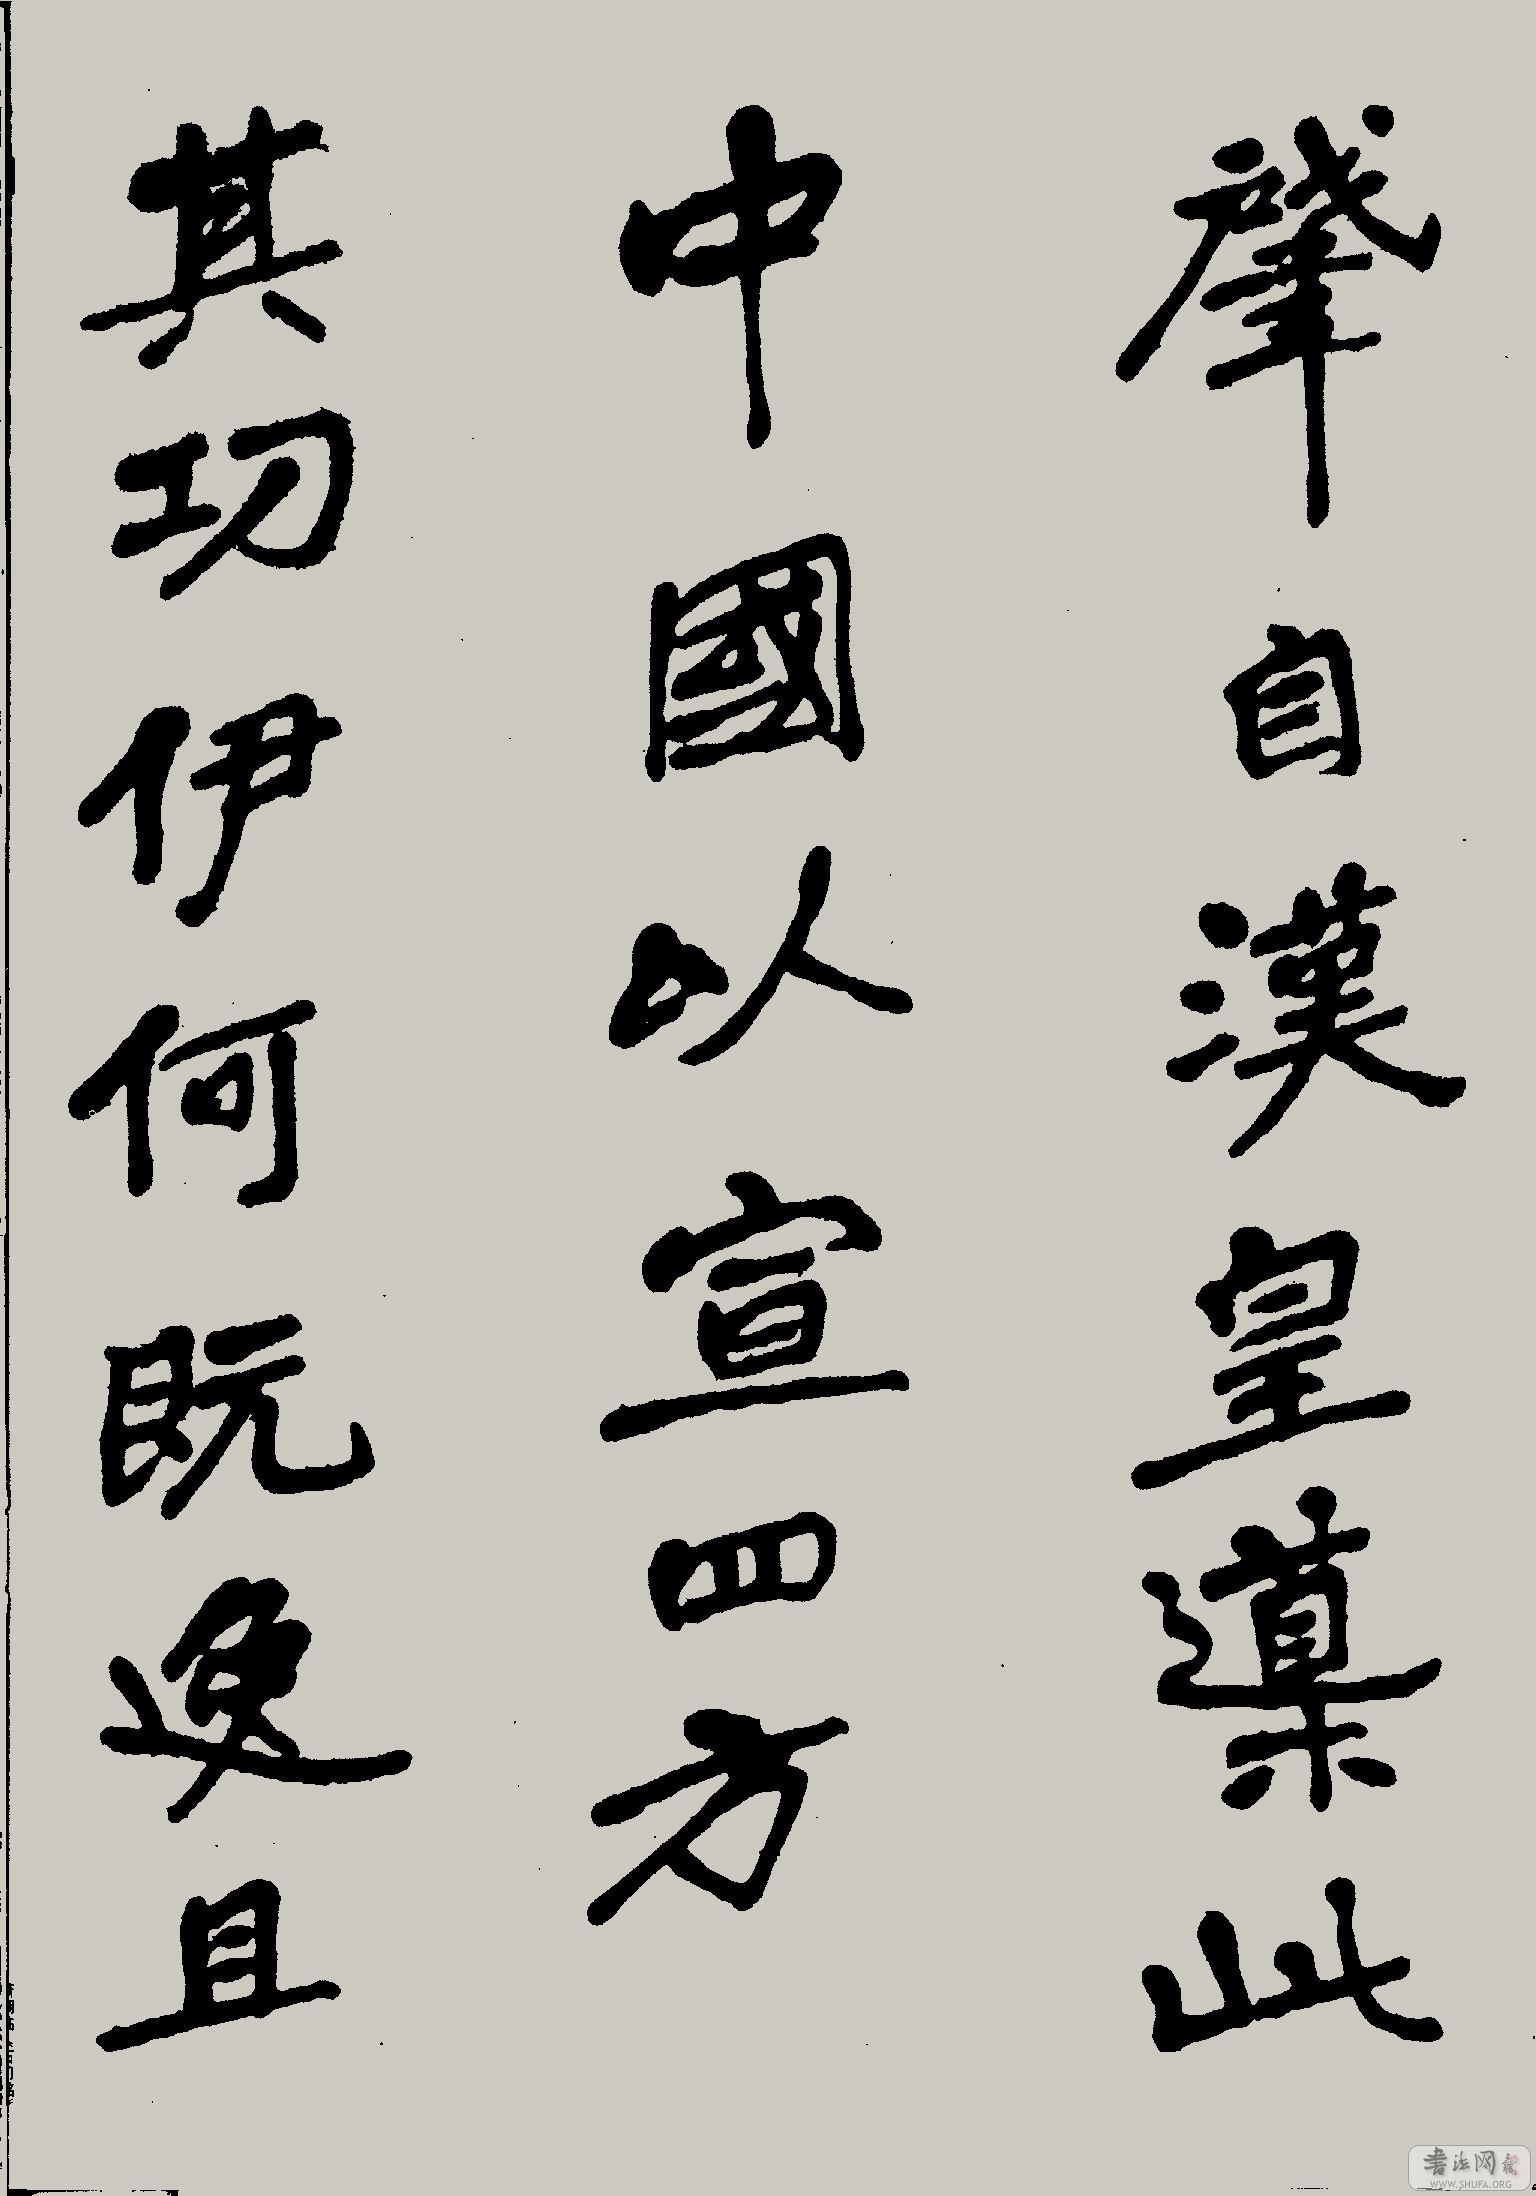 肈自漢皇導此
中國以宣四方
其功伊何既逸且
書法网
WWW.SHUFA.ORG